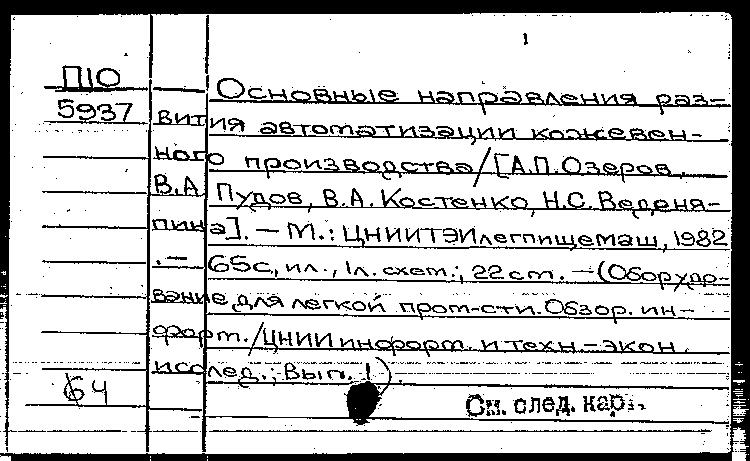 1
П10
5937
Основные направления раз-
вития автоматизации кожевен-
ного производства/[А.П.Озеров,
В.А. Пудов, В.А. Костенко, Н.С. Веденя-
пина]. — М.: ЦНИИТЭИлегпищемаш, 1982
. — 65с, ил., 1л. схем.; 22 см. — (Оборудо-
вание для легкой пром-сти. Обзор. ин-
форм. / ЦНИИ информ. и техн-экон.
исслед.; Вып. 1).
64
См. след. кар